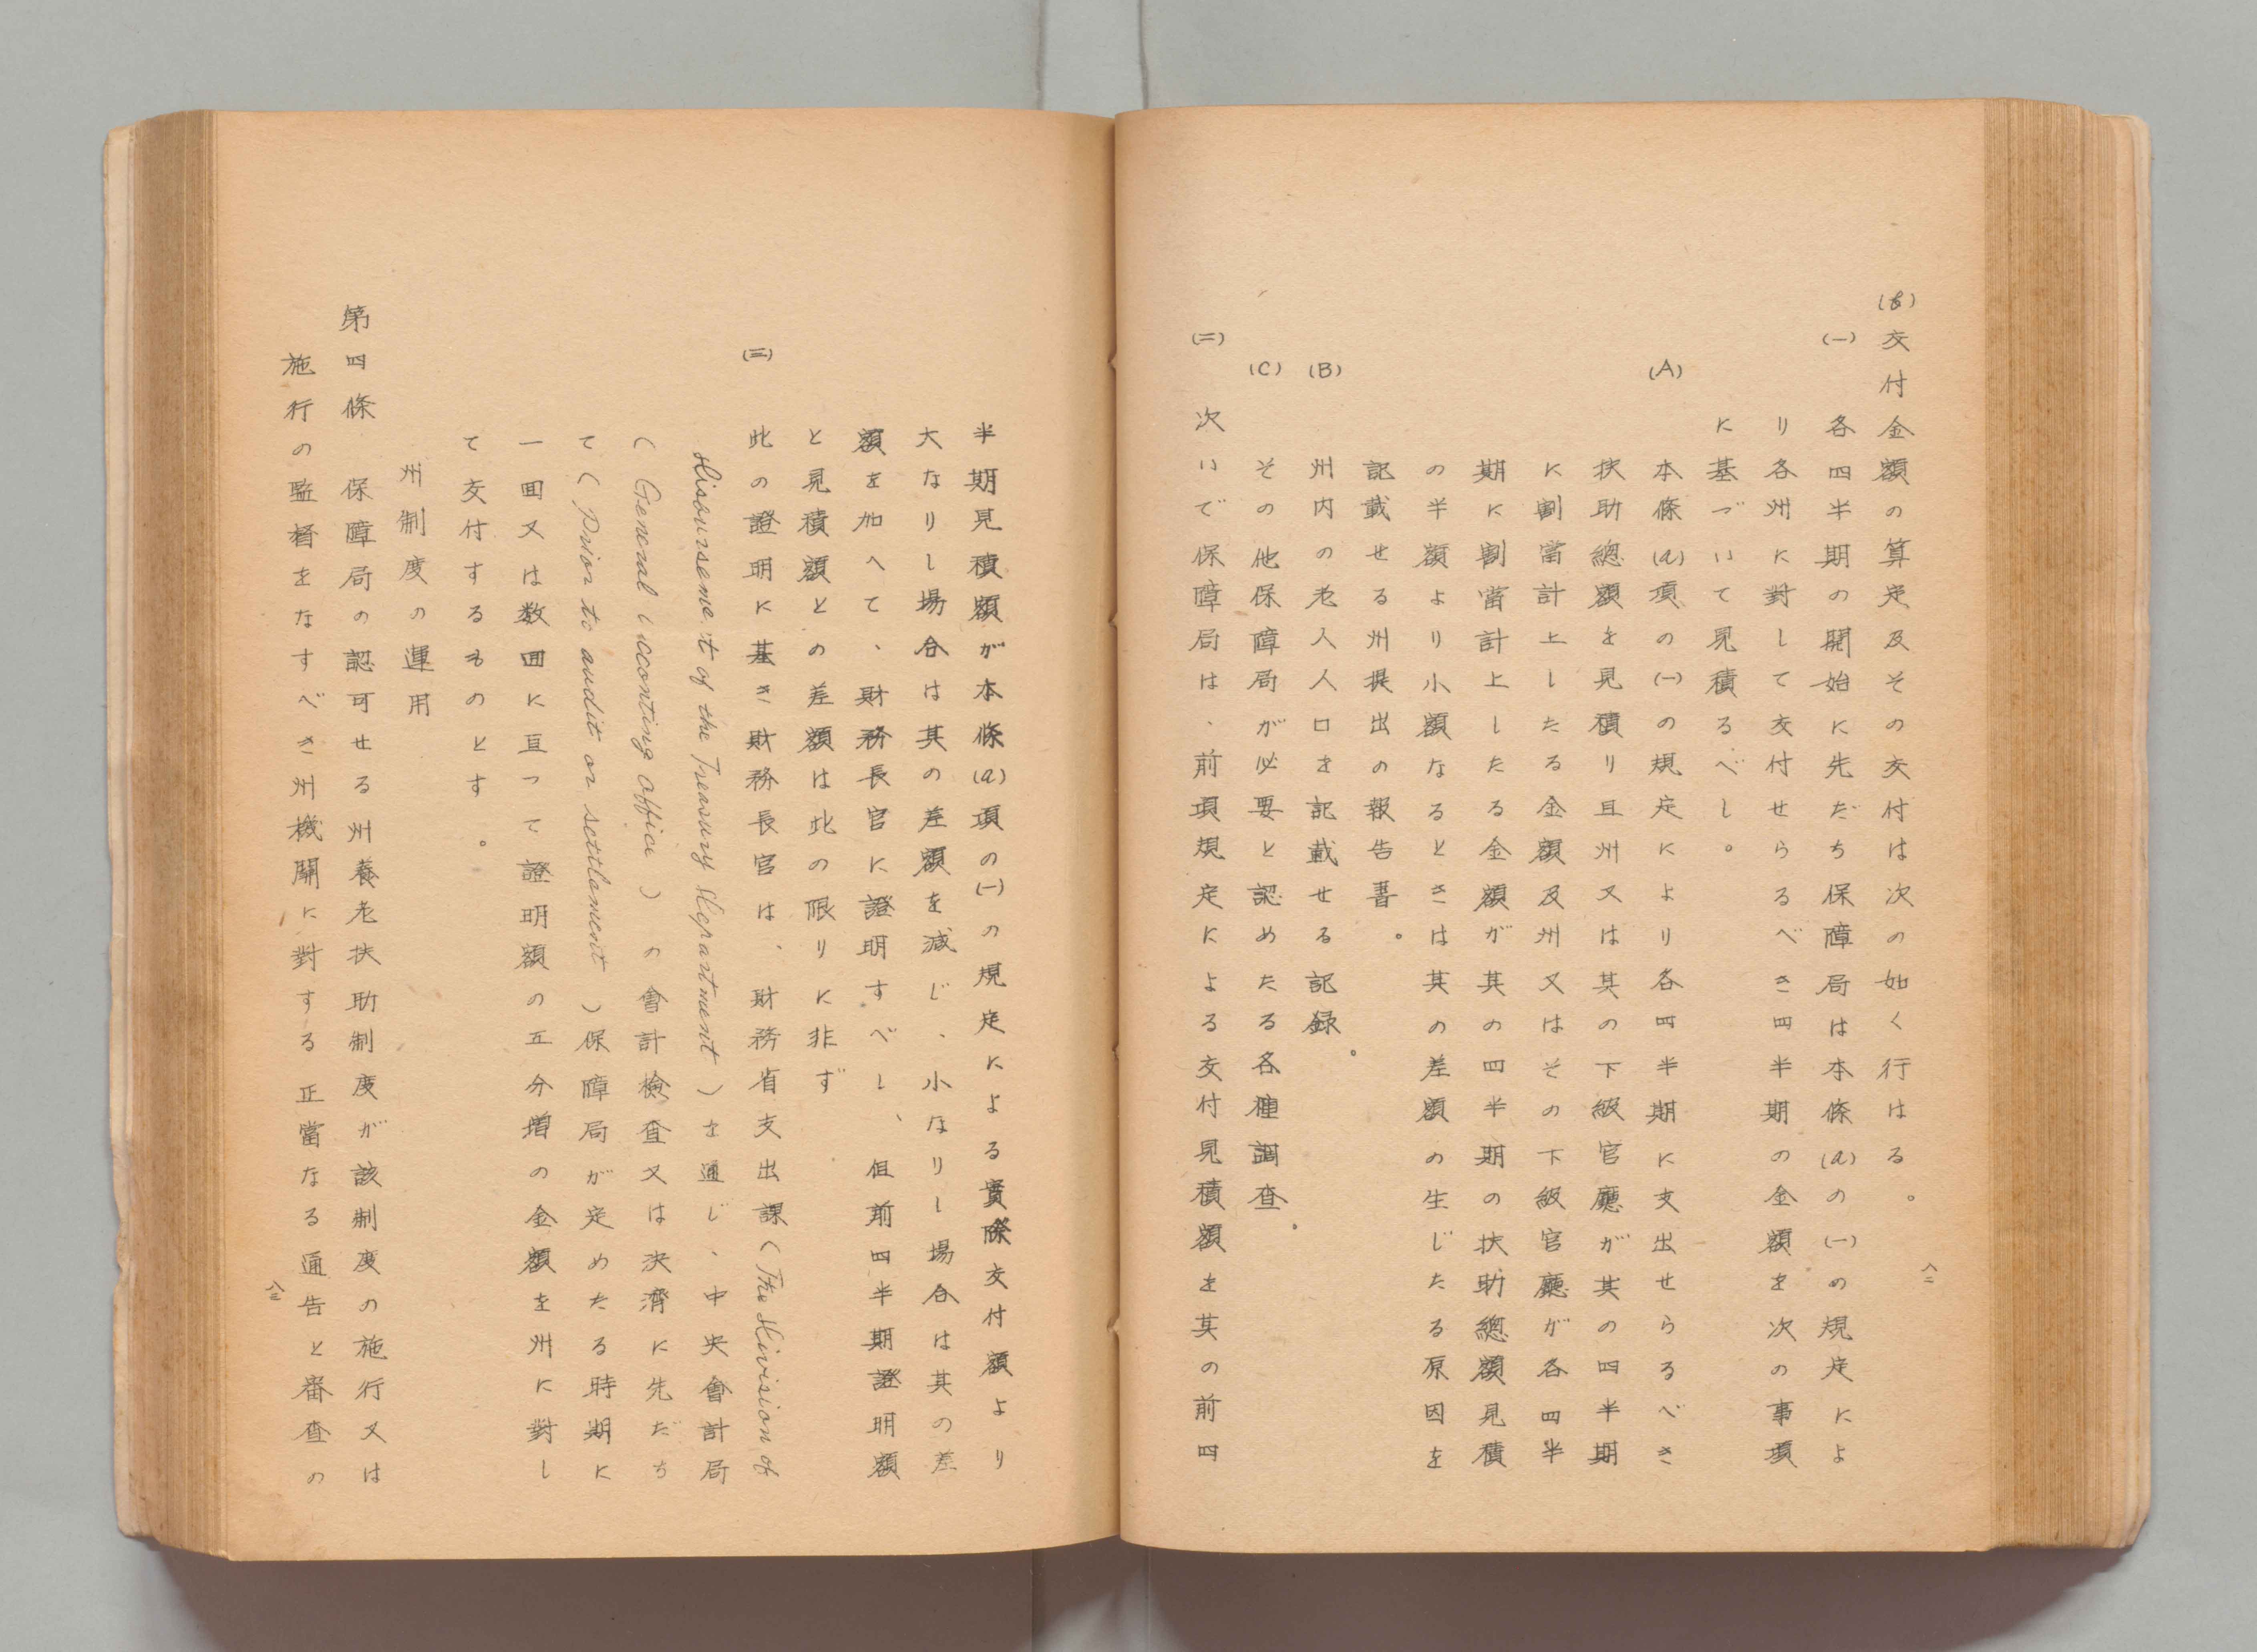 (b)交付金額の算定及その交付は次の如く行はる。
(一)各四半期の開始に先だち保障局は本條(a)の(一)の規定によ
り各州に對して交付せらるべき四半期の金額を次の事項
に基づいて見積るべし。
(A)本條(a)項の(一)の規定により各四半期に支出せらるべき
扶助總額を見積り且州又は其の下級官廳が其の四半期
に割當計上したる金額及州又はその下級官廳が各四半
期に割當計上したる金額が其の四半期の扶助總額見積
の半額より小額なるときは其の差額の生じたる原因を
記載せる州提出の報告書。
(B)州内の老人人口を記載せる記録。
(C)その他保障局が必要と認めたる各種調査.
(二)次いで保障局は、前項規定による交付見積額を其の前四
八二
半期見積額が本條(a)項の(一)の規定による實際交付額より
大なりし場合は其の差額を減じ、小なりし場合は其の差
額を加へて、財務長官に證明すべし、但前四半期證明額
と見積額との差額は此の限りに非ず
(三)此の證明に基き財務長官は、財務省支出課(The Division of
Disoursement of the Treasury Department)を通じ、中央會計局
(General Acconting Office)の會計檢査又は決濟に先だち
て(Prior to audit or settlament)保障局が定めたる時期に
一回又は数回に亘って證明額の五分増の金額を州に對し
て交付するものとす。
州制度の運用
第四條 保障局の認可せる州養老扶助制度が該制度の施行又は
施行の監督をなすべき州機關に對する正當なる通告と審査の
八三